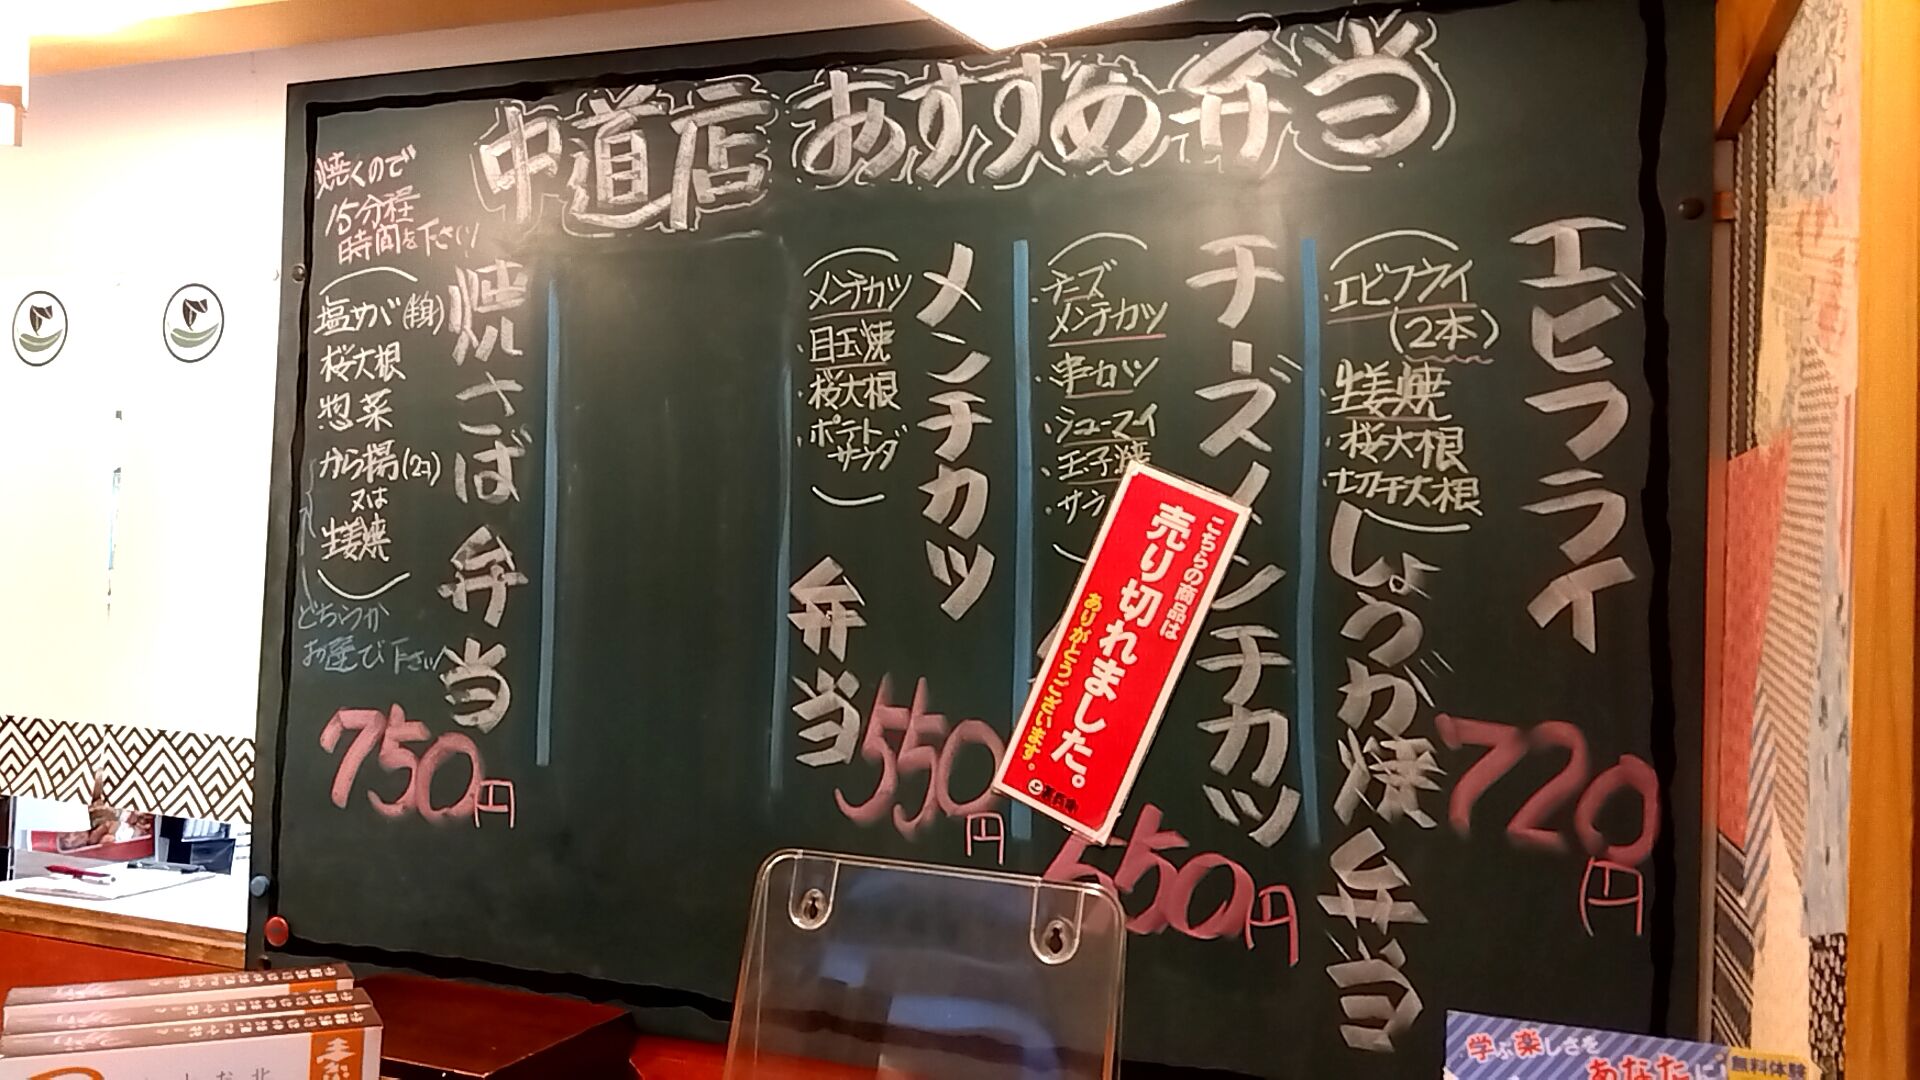 中道店 おすすめ弁当
エビフライ
しょうが焼弁当
エビフライ
(2本)
生姜焼
桜大根
切干大根
720円
チーズメンチカツ
チーズ
メンチカツ
串カツ
シューマイ
玉子焼
サラ
550円
こちらの商品は
売り切れました。
ありがとうございます。
メンチカツ
弁当
メンチカツ
目玉焼
桜大根
ポテト
サラダ
550円
焼さば弁当
焼くので
15分程
時間を下さい
塩サバ(半身)
桜大根
惣菜
から揚(2ヶ)
又は
生姜焼
どちらか
お選び下さい
750円
学ぶ楽しさを
あなたに
無料体験